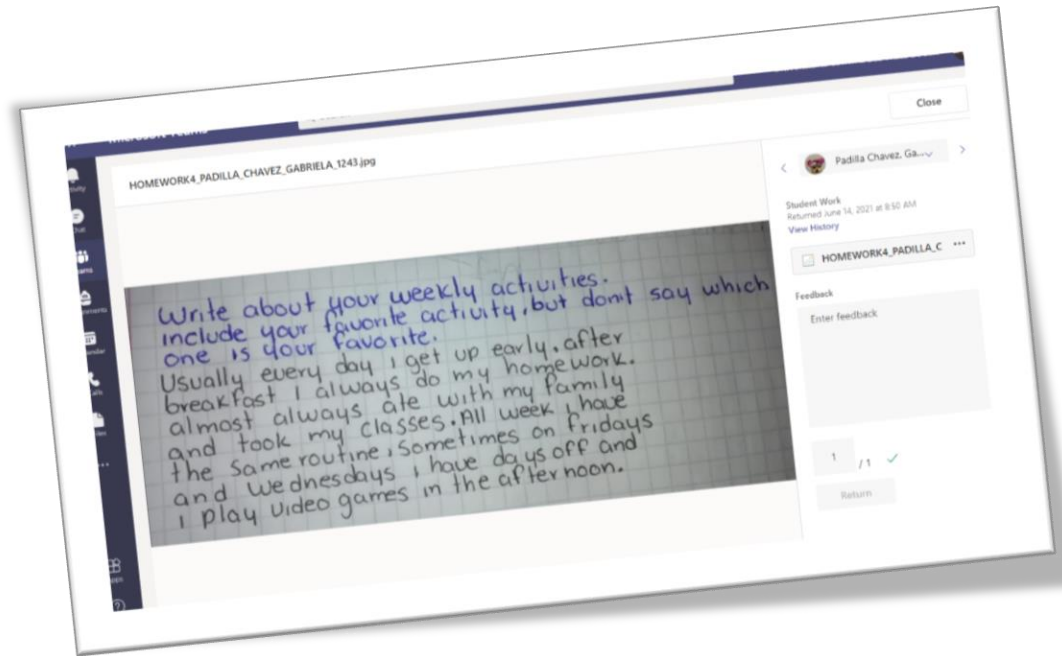 Microsoft Teams
Close
HOMEWORK4_PADILLA_CHAVEZ_GABRIELA_1243.jpg
Padilla Chavez, Ga...
Student Work
Returned June 14, 2021 at 8:50 AM
View History
HOMEWORK4_PADILLA_C ...
Feedback
Enter feedback
1 / 1
Return
Write about your weekly activities.
include your favorite activity, but don't say which
one is your favorite.
Usually every day i get up early. after
breakfast I always do my homework.
almost always ate with my family
and took my classes. All week i have
the same routine, sometimes on fridays
and wednesdays i have days off and
i play video games in the afternoon.